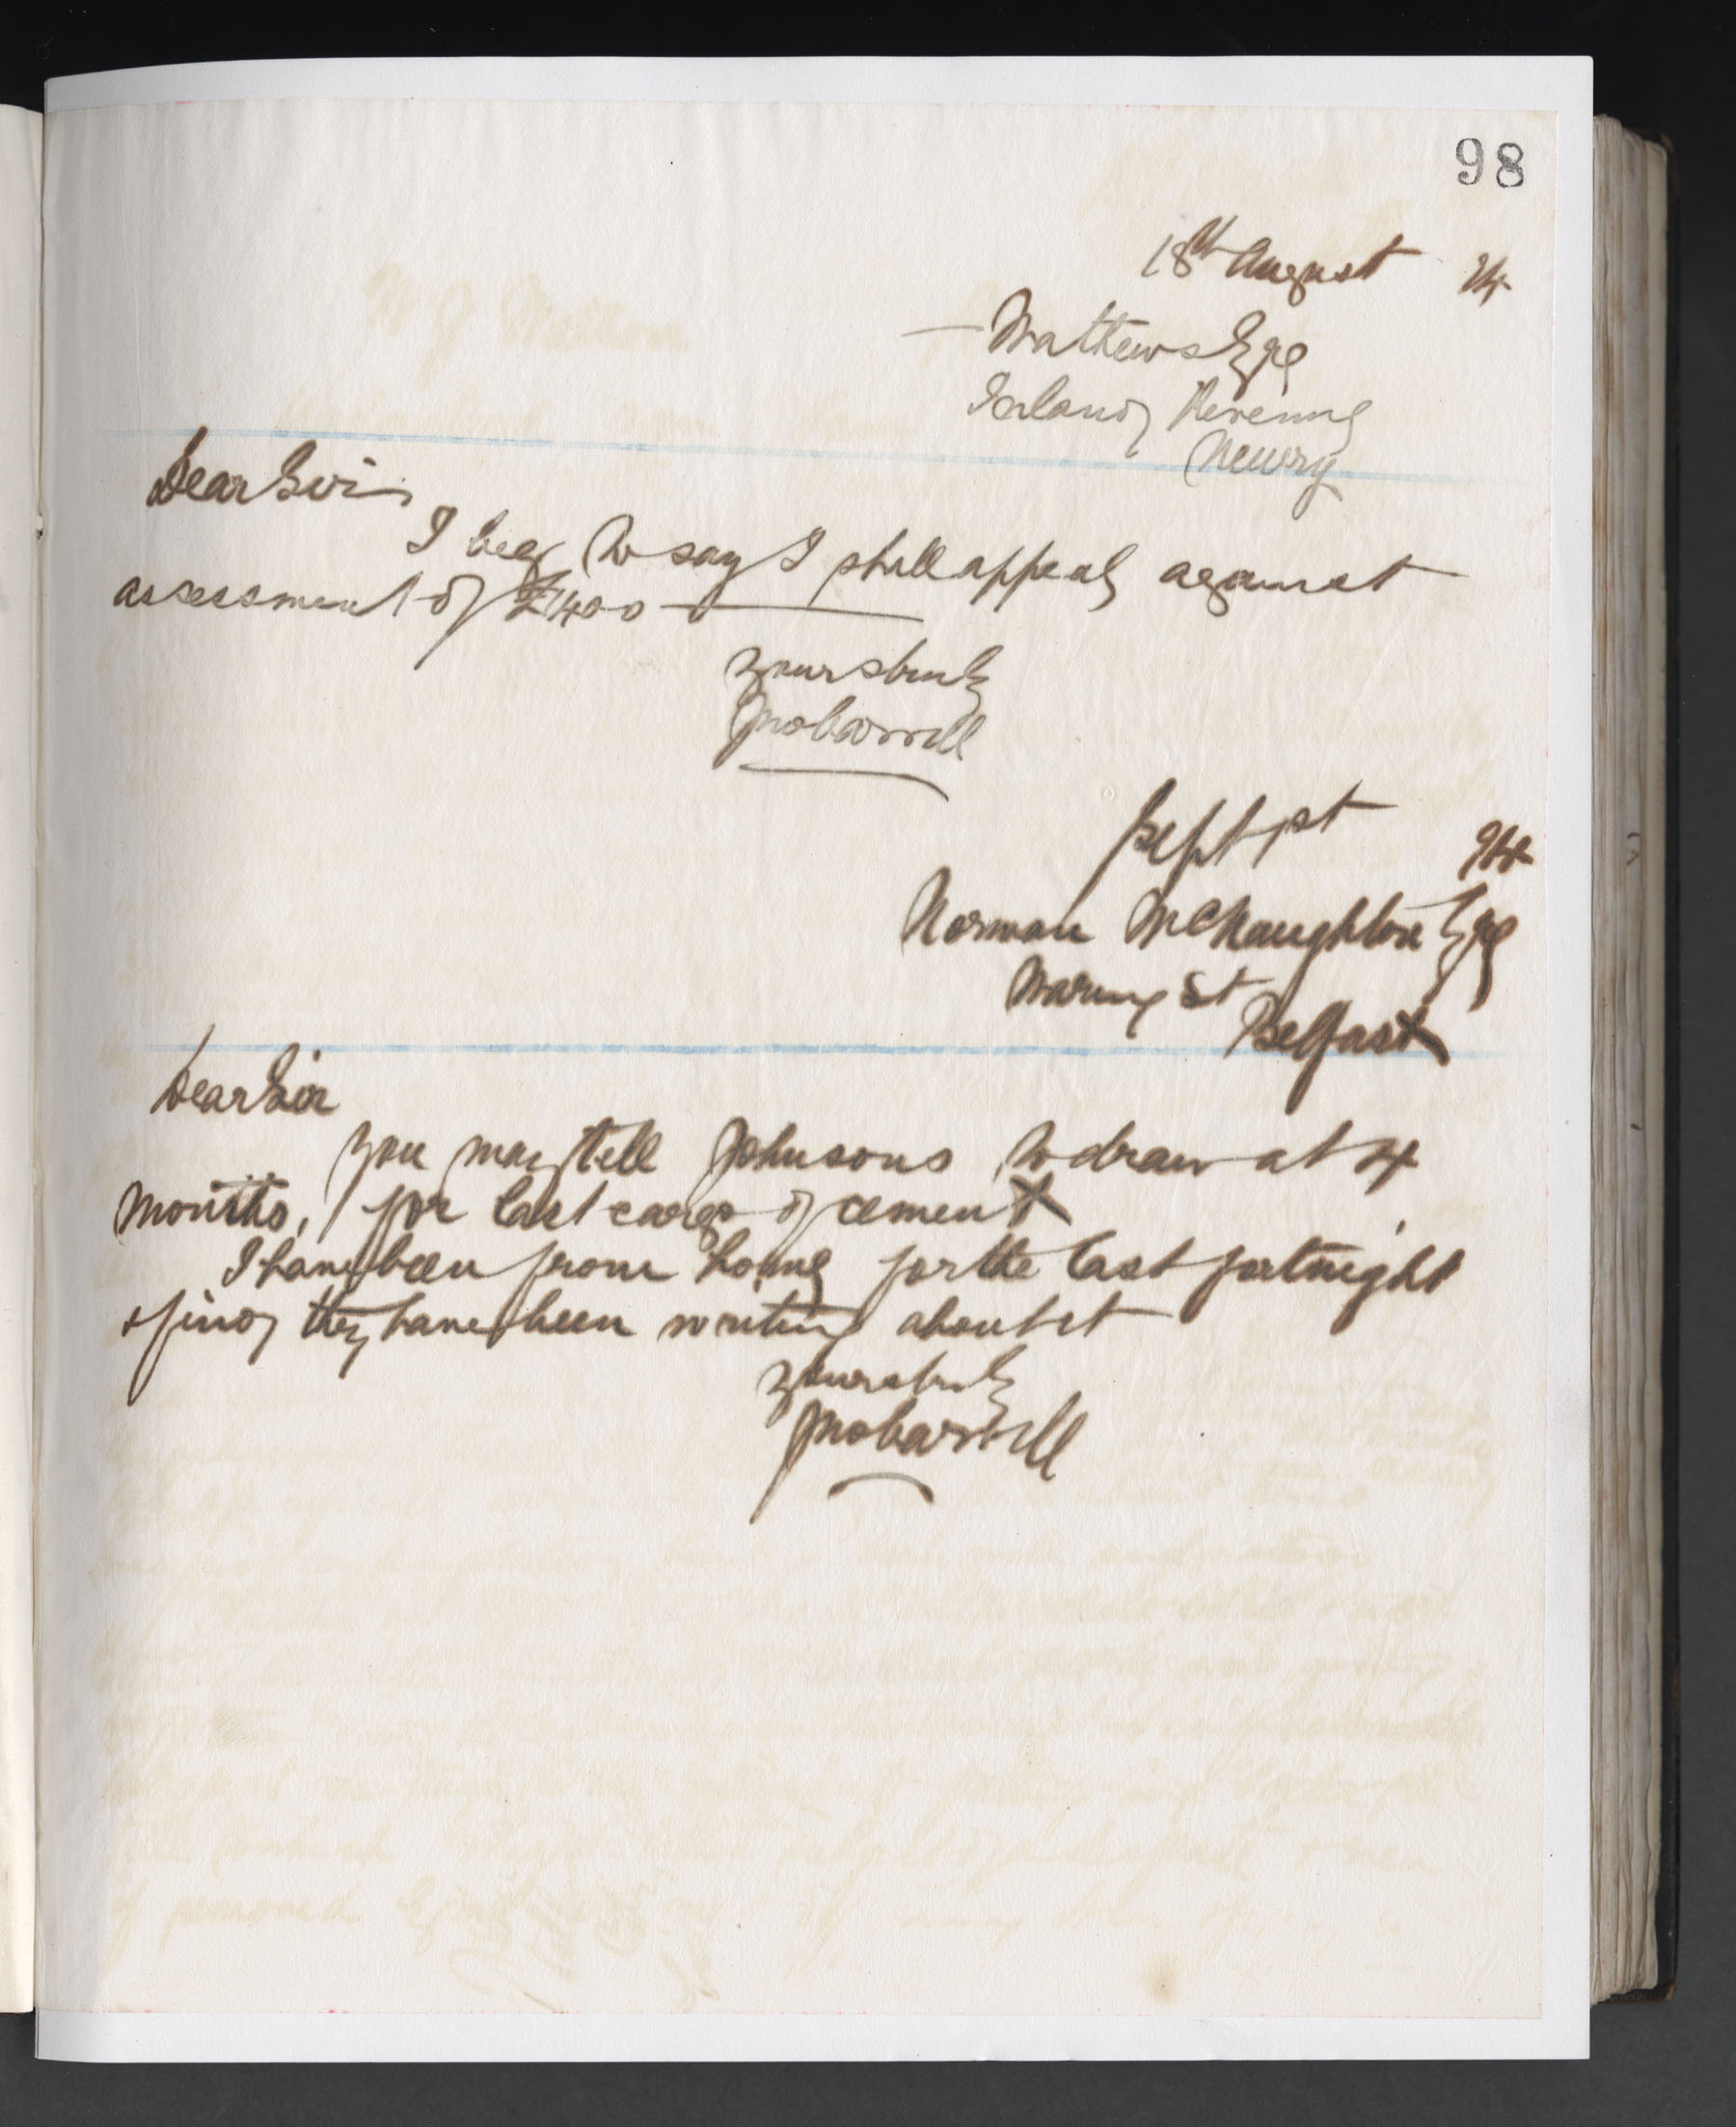 98
18th August 94
— Matthews Esqe
Inland Revenue
Newry
Dear Sir
I beg to say I shall appeal against
assessment of £1400
yours truly
Jno Carroll
Sept 1st 94
Norman McNaughton Esqe
Waring St
Belfast
Dear Sir
you may tell Johnsons to draw at 4
months, for last cargo of cement
I have been from home for the last fortnight
& find they have been writing about it
yours truly
Jno Carroll